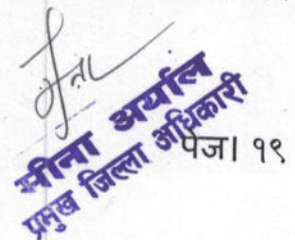 मीना अर्याल
प्रमुख जिल्ला अधिकारी
पेज। १९